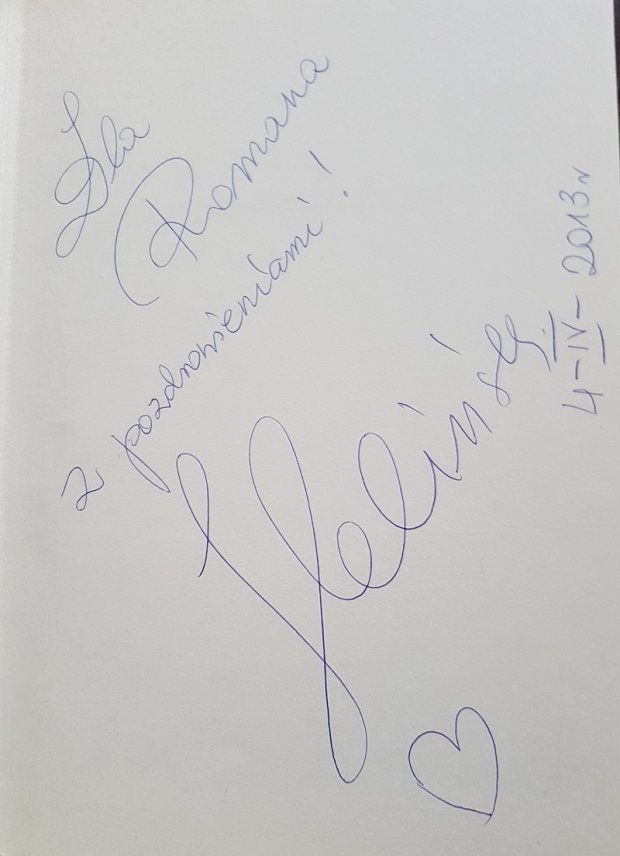 Dla
Romana
z pozdrowieniami!
4-IV-2013 r